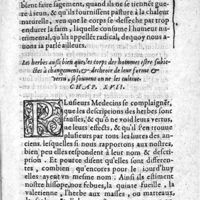 blent faire sagement, quand ils ne se tiẽnẽt gue-
re à ieun, ains fournissent pasture à la chaleur
naturelle, veu que le corps se desseche par trop
endurer la faim, laquelle consume l'humeur na-
turel
nous a-
uons ia parlé ailleurs.
Les herbes aussi bien que les corps des hommes estre subie-
ctes à changement, & decheoir de leur forme &
vertu, si souuent on ne les cultiue.
CHAP. XVII.
PLusieurs Medecins se complaignẽt,
que les descriptions des herbes sont
fausses, & qu'õ ne void leurs vertus,
ne leurs effects, & qu'il s'en trouue
plusieurs par tous les liures des an-
ciens, lesquelles si nous rapportons aux nostres,
bien peu elles respondent à leur nom & descri-
ption. Et pource disent qu'elles sont differen-
tes, combien que encores pour le iourd'huy
elles soient en estre. Ainsi disent-ils estre
nostre hissope, nõ febues, la quinte fueille, la
valeriane, l'herbe aux masses, ou matthes,